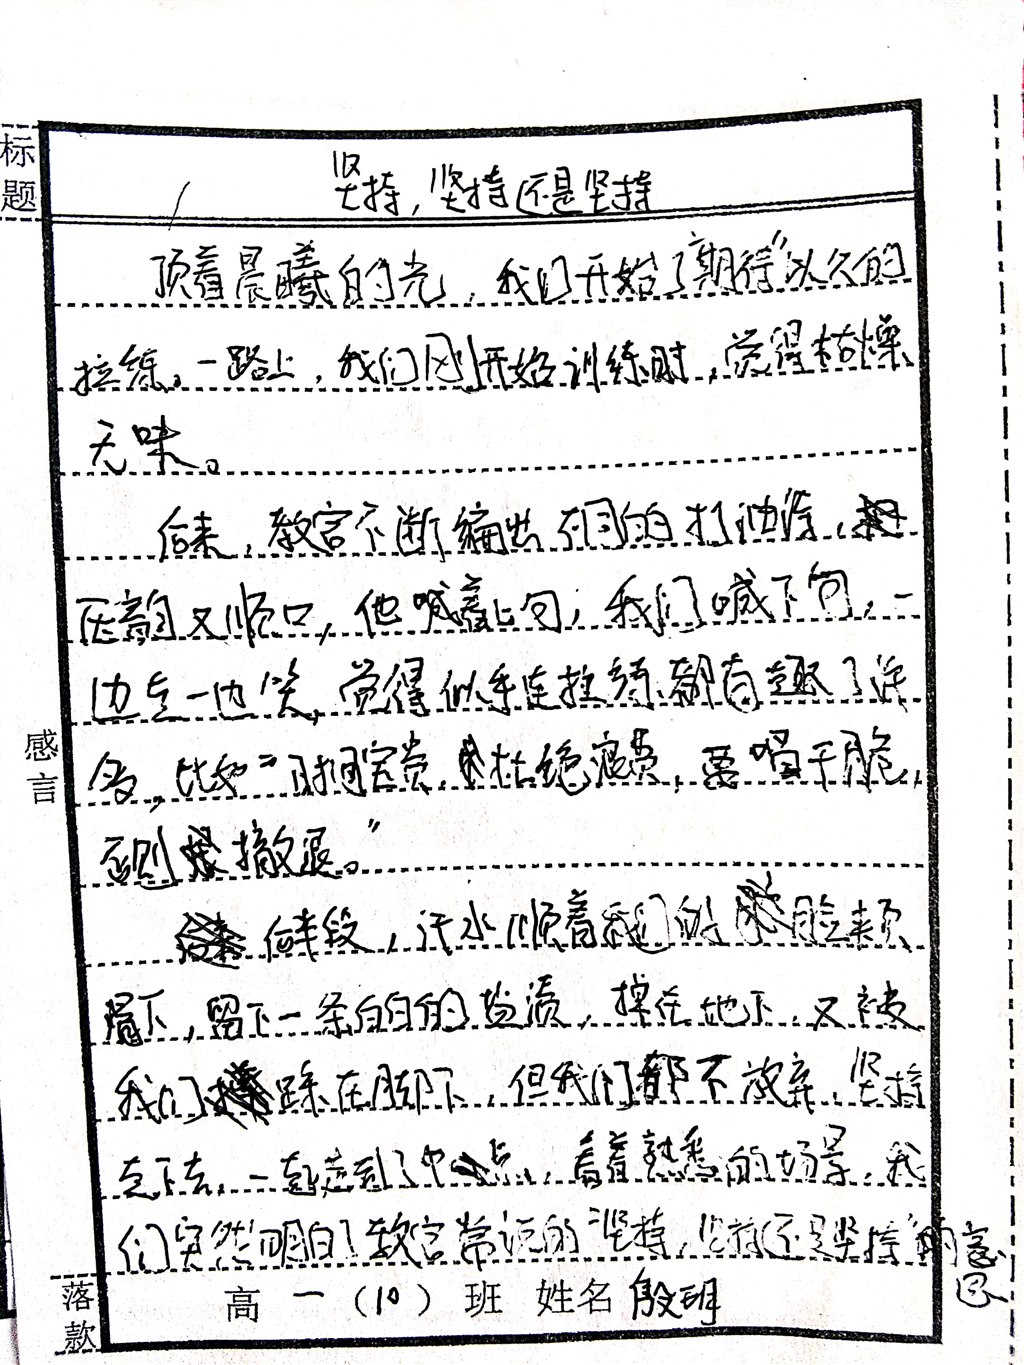 标题
坚持,坚持还是坚持
顶着晨曦的光,我们开始了“期待”以久的
拉练。一路上,我们刚开始训练时,觉得枯燥
无味。
后来,教官不断编出不同的打油诗,
压韵又顺口,他喊着上句,我们喊下句,一
边走一边笑,觉得似乎连拉练都有趣了许
多,比如“,杜绝浪费,要喝干脆,
否则撤退。”
感言
后半段,汗水顺着我们的脸颊
留下,留下一条白白的盐渍,掉在地下,又被
我们踩在脚下,但我们都不放弃,坚持
走下去,一起走到了点,看着熟悉的场景,我
们突然明白了教官常说的“坚持,坚持还是坚持”的意
思。
落款
高一(10)班 姓名 殷玥